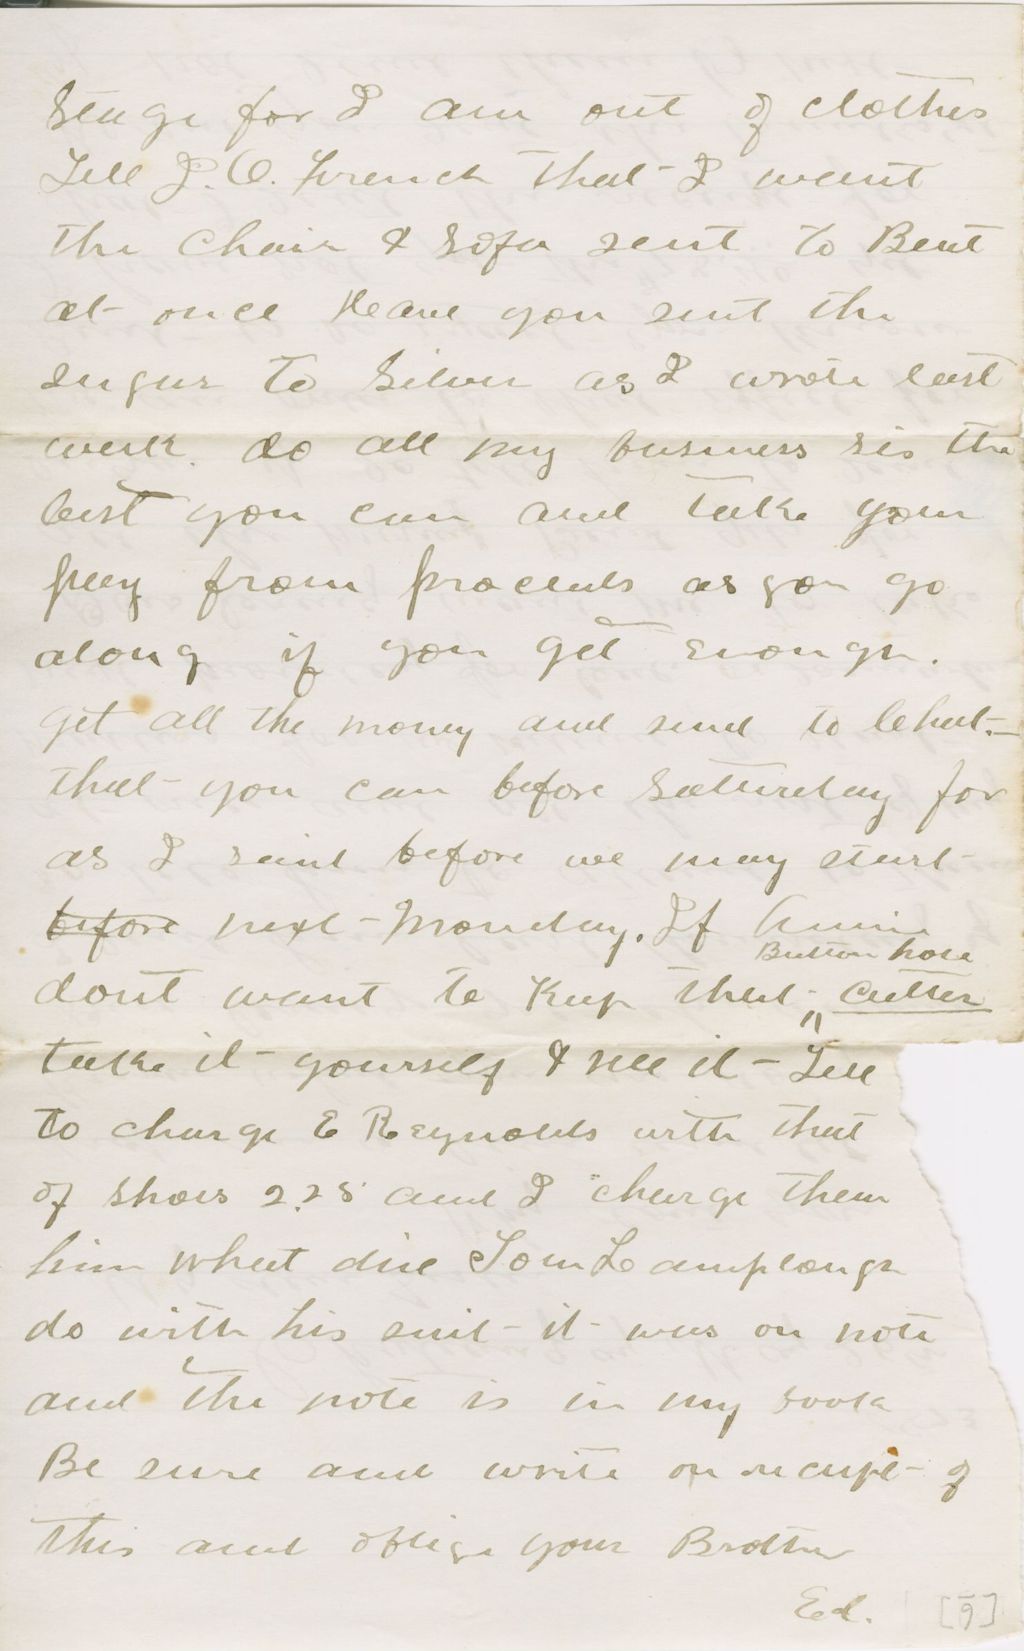 Stage for I am out of clothes
Tell J. O. French that I want
the chair & Sofa sent to Bent
at once Have you sent the
sugar to Silver as I wrote last
week. do all my business sis the
best you can and take your
pay from proceeds as you go
along if you get enough.
get all the money and send to
that you can before Saturday for
as I said before we may start
before next Monday. If Annie
Button hole
dont want to Keep that cutter
take it yourself & sell it Tell
to charge E Reynolds with that
of Shoes 2.25 and I charge them
him What did Tom Lamplough
do with his suit it was on note
and the note is in my book
Be sure and write on receipt of
this and oblige your Brother
Ed. [9]